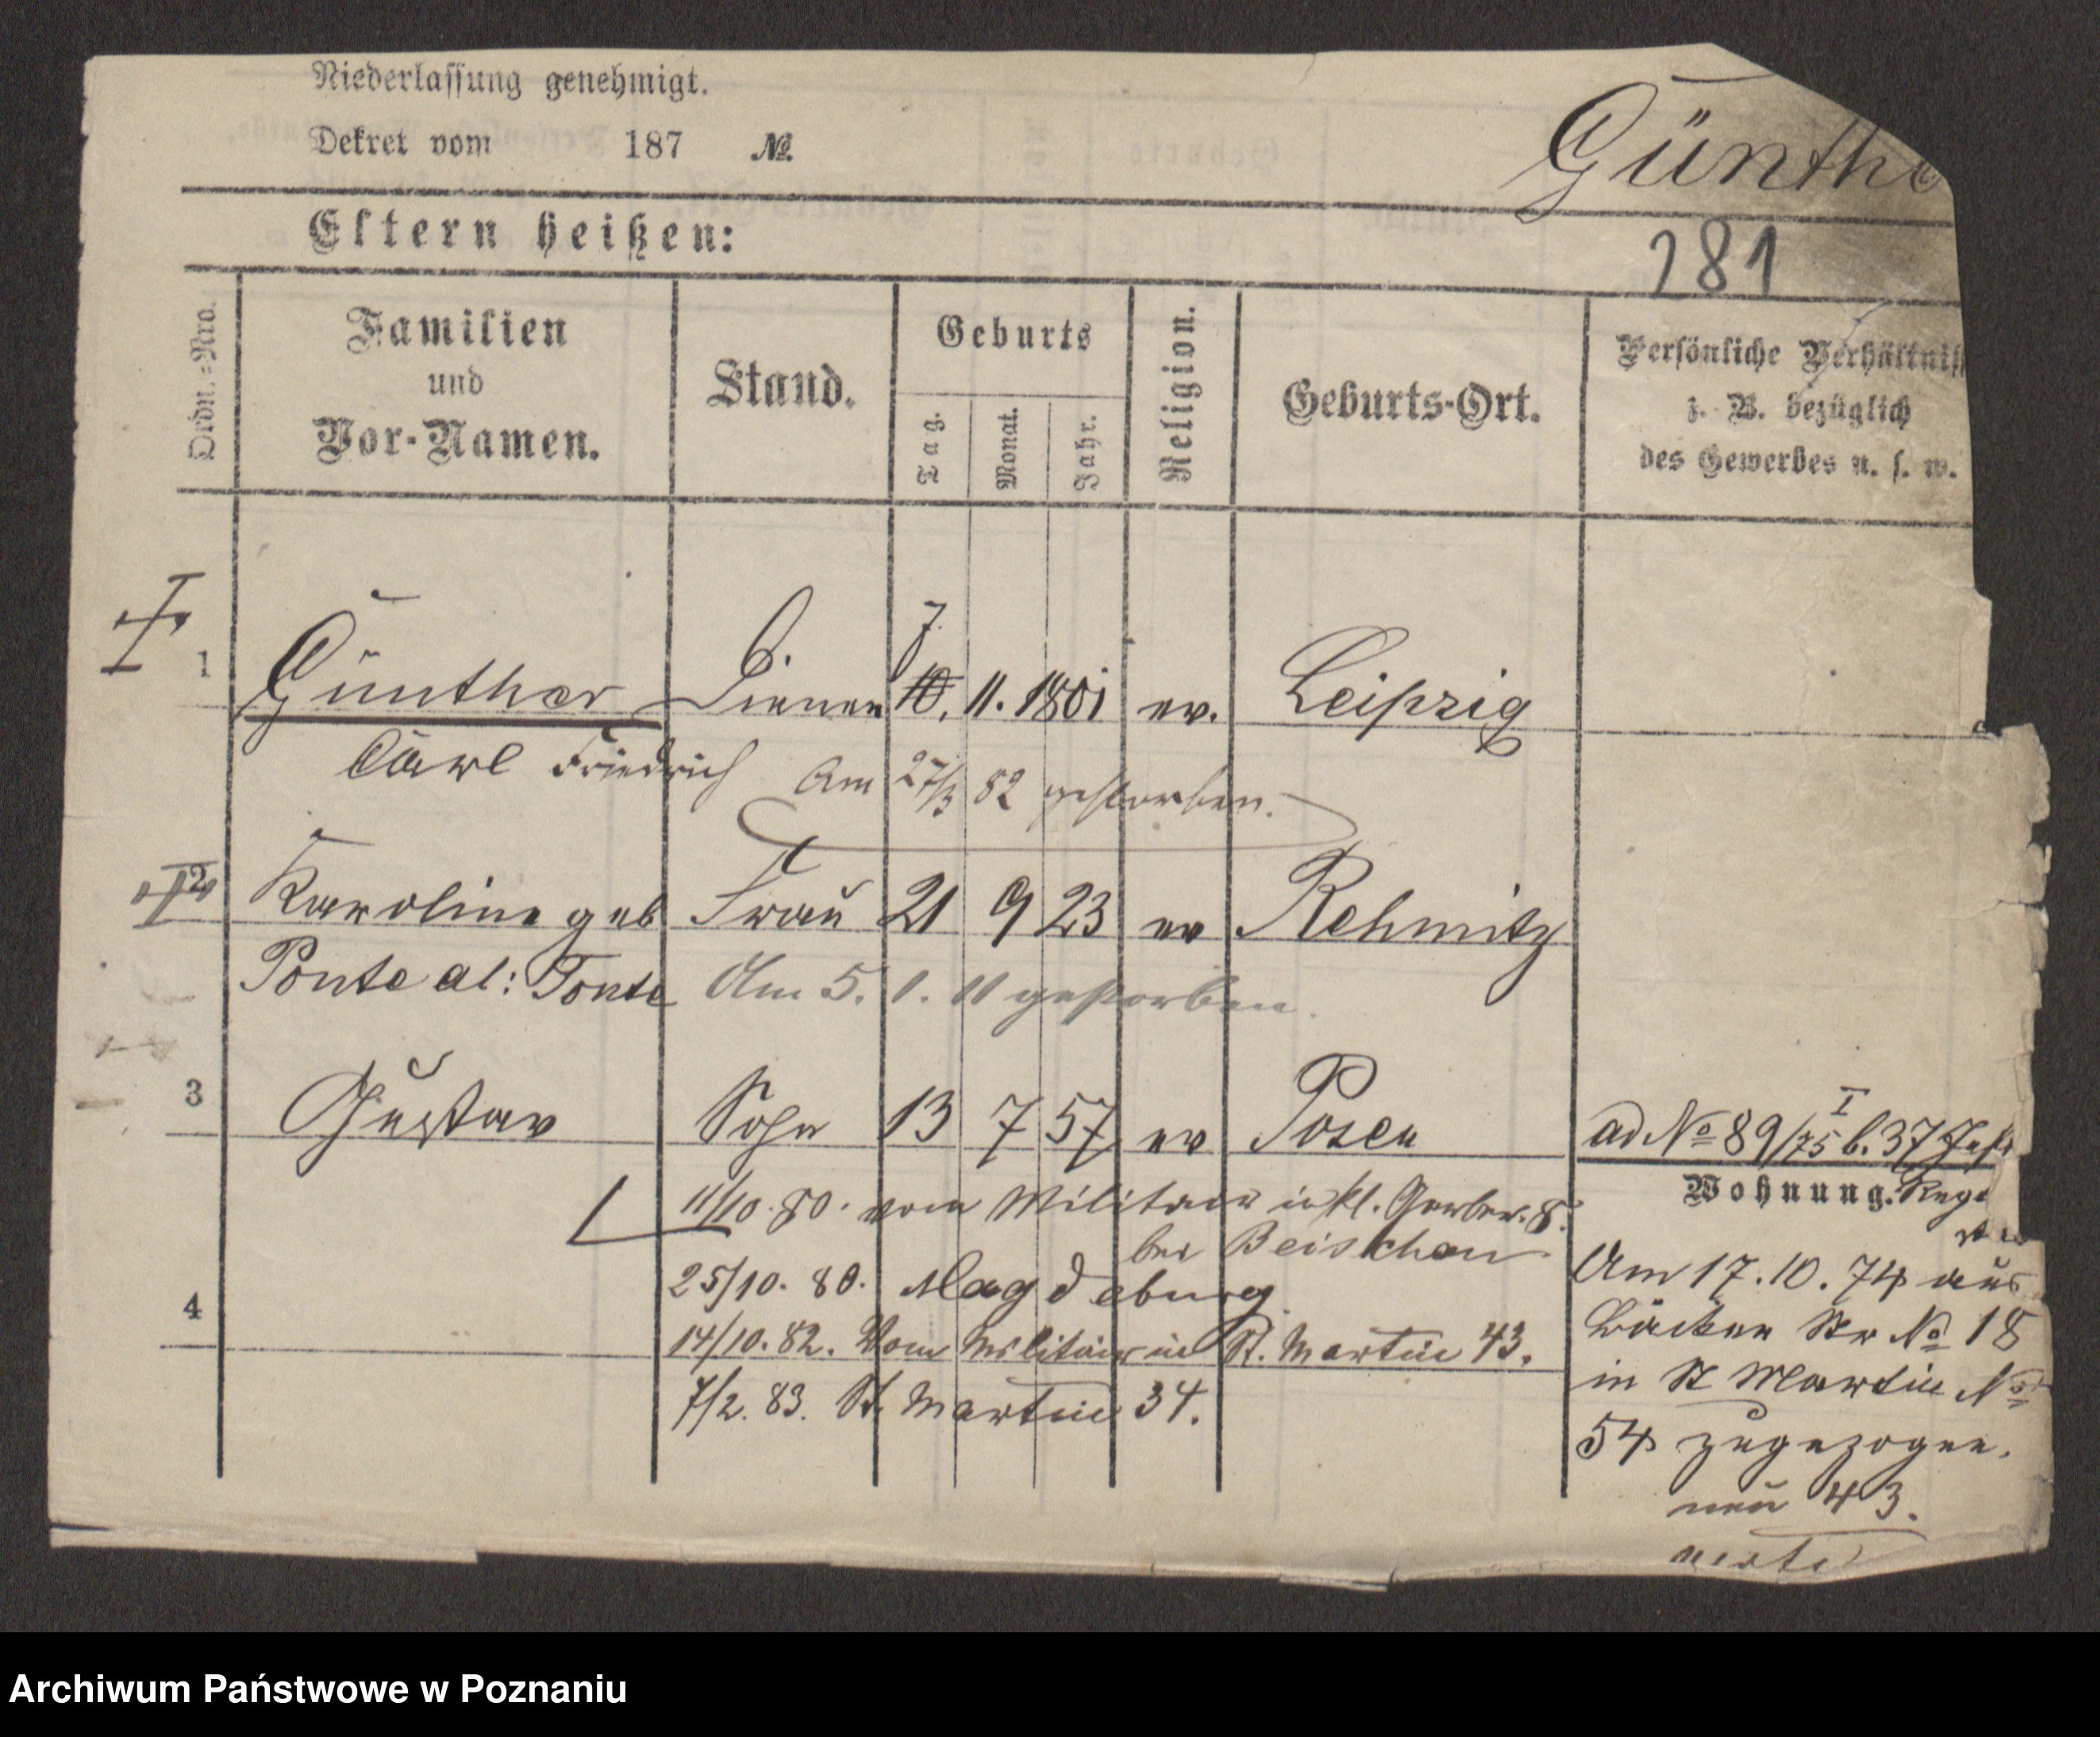 Niederlassung genehmigt.
Dekret vom 187 №.
Günthe
281
Eltern heißen:
Ordn.-Nro.
Familien
und
Vor-Namen.
Stand.
Geburts
Tag.
Monat.
Jahr.
Religion.
Geburts-Ort.
Persönliche Verhältniss
z. B. bezüglich
des Gewerbes u. s. w.
7.
1 Günther Diener 10. 11. 1801 ev. Leipzig
Carl Friedrich Am 27/3 82 gestorben.
2 Karoline geb Frau 21 9 23 ev Rehmitz
Ponte al: Tonte Am 5. 1. 11 gestorben.
3 Gustav Sohn 13 7 57 ev Posen
ad № 89/75 b. 37
I
Wohnung.
11/10. 80. vom Militair Gerber. 8.
bei Beischau
25/10. 80. Magdeburg
4
14/10. 82. Vom Militair in St. Martin 43.
7/2. 83. St. Martin 34.
Am 17. 10. 74 aus
Bäcker Str № 18
in St Martin №
54 zugezogen.
neu 43.